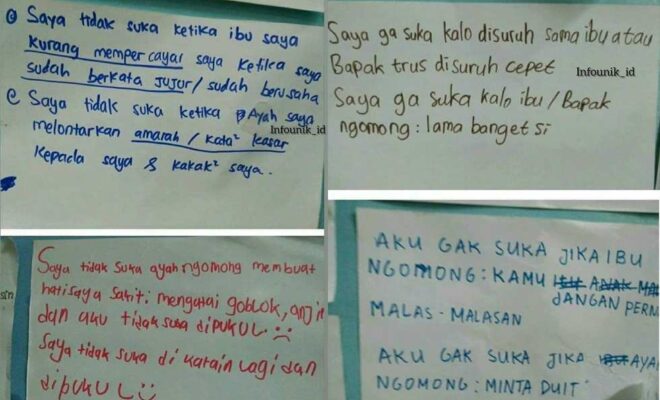 Saya tidak suka ketika ibu saya
kurang mempercayai saya ketika saya
sudah berkata jujur / sudah berusaha
Saya tidak suka ketika Ayah saya
melontarkan amarah / kata² kasar
kepada saya & kakak² saya.
Infounik_id
Saya ga suka kalo disuruh sama ibu atau
Bapak trus disuruh cepet
Infounik_id
Saya ga suka kalo ibu / Bapak
ngomong : lama banget si
Saya tidak suka ayah ngomong membuat
hati saya sakit: mengatai goblok, anjin
dan aku tidak suka dipukul :(
Infounik_id
Saya tidak suka di katain lagi dan
dipukul :(
AKU GAK SUKA JIKA IBU
NGOMONG : KAMU
JANGAN PERNA
MALAS - MALASAN
AKU GAK SUKA JIKA AYA
NGOMONG : MINTA DUIT